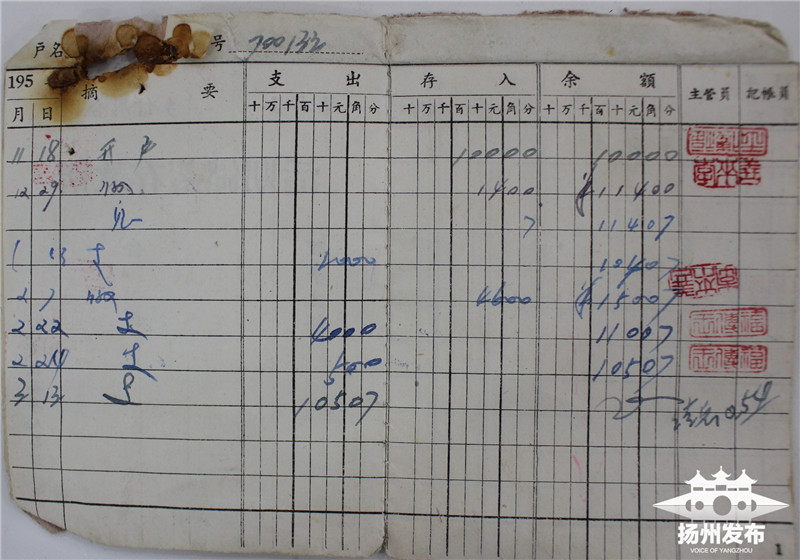 户名 号 700133
195 摘 要 支 出 存 入 余 额 主管员 记帐员
月 日 十 万 千 百 十 元 角 分 十 万 千 百 十 元 角 分 十 万 千 百 十 元 角 分
11 18 开户 10000 10000
12 29 1400 ¥11400
息 7 11407
1 13 支 1000 10407
2 7 4600 ¥15007
2 22 支 4000 11007
2 24 支 500 10507
3 13 10507 0.54
1
扬州发布
VOICE OF YANGZHOU